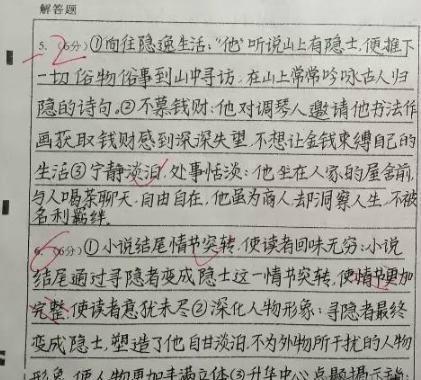 解答题
5. (6分) ①向往隐逸生活:“他”听说山上有隐士,便推下
一切俗物俗事到山中寻访,在山上常常吟咏古人归
隐的诗句。②不慕钱财:他对调琴人邀请他书法作
画获取钱财感到深深失望,不想让金钱束缚自己的
生活③宁静淡泊,处事恬淡:他坐在人家的屋舍前,
与人喝茶聊天,自由自在,他虽为商人却洞察人生,不被
名利羁绊.
-2
6. (6分) ①小说结尾情节突转,使读者回味无穷:小说
结尾通过寻隐者变成隐士这一情节突转,使情节更加
完整,使读者意犹未尽②深化人物形象:寻隐者最终
变成隐士,塑造了他自甘淡泊,不为外物所干扰的人物
形象,使人物更加丰满立体③升华中心点题揭示